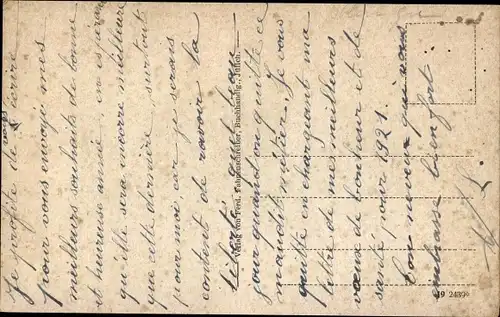 Je profite de vous écrire
pour vous envoyé mes
meilleurs souhaits de bonne
et heureuse année, en espérant
qu'elle sera encore meilleure
que cette dernière surtout
pour moi car je serais
content de ravoir la
liberté
jour quand on quitte ce
maudit métier. Je vous
quitte en chargeant ma
lettre de mes meilleurs
vœux de bonheur et de
santé pour 1921.
Ton neveu qui vous
embrasse bien fort
Verlag von Ferd. Buchhandlg., Jülich.
19 2439